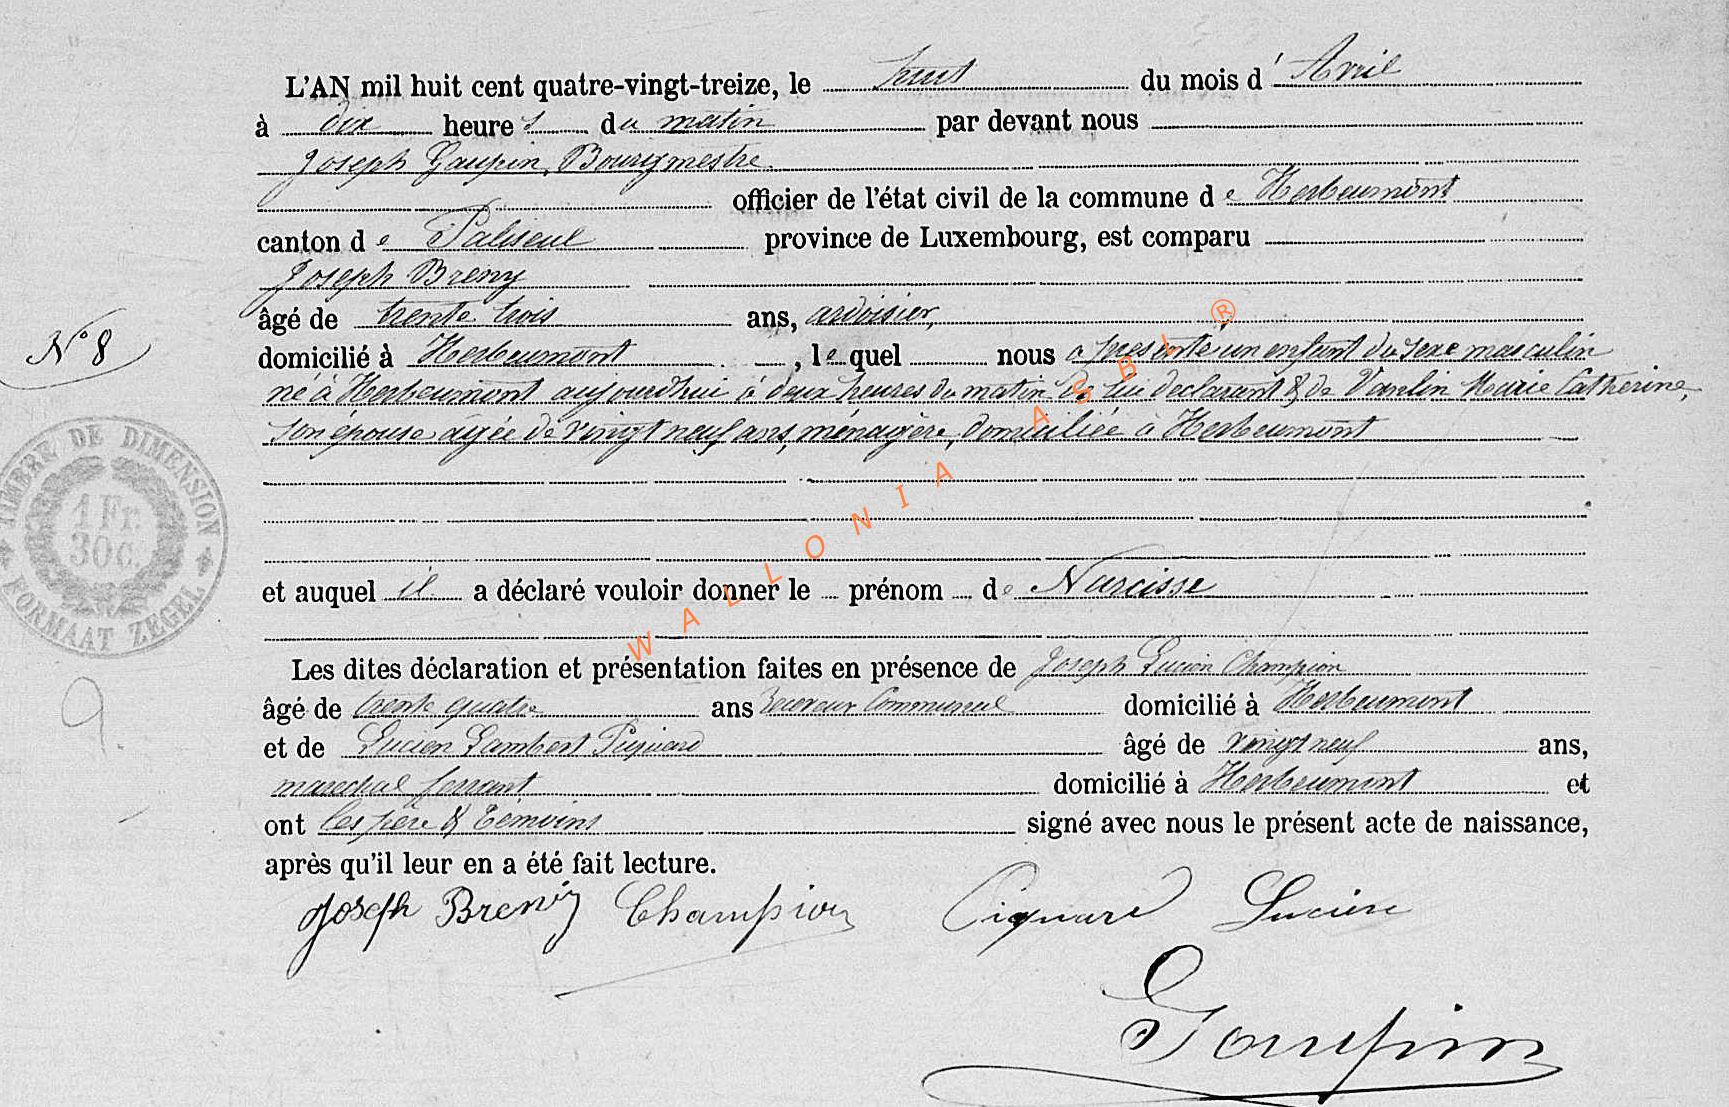 L'AN mil huit cent quatre-vingt-treize, le huit du mois d'Avril
à dix heures du matin par devant nous
Joseph Goupin, Bourgmestre
officier de l'état civil de la commune de Herbeumont
canton de Paliseul province de Luxembourg, est comparu
Joseph Breny
âgé de trente trois ans, ardoisier,
N° 8
domicilié à Herbeumont, lequel nous a présenté un enfant du sexe masculin
né à Herbeumont aujourdhui à deux heures du matin de lui déclarant & de Marie Catherine,
son épouse agée de vingt neuf ans, ménagère, domiciliée à Herbeumont
TIMBRE DE DIMENSION
1 Fr.
30 c.
FORMAAT ZEGEL
et auquel il a déclaré vouloir donner le prénom de Narcisse
Les dites déclaration et présentation faites en présence de Joseph Lucien Champion
âgé de trente quatre ans receveur Communal domicilié à Herbeumont
et de Lucien Lambert Pignard âgé de vingt neuf ans,
maréchal ferrant domicilié à Herbeumont et
ont les père & témoins signé avec nous le présent acte de naissance,
après qu'il leur en a été fait lecture.
9.
Joseph Breny Champion Pignard Lucien
Goupin
WALLONIA ASBL ®